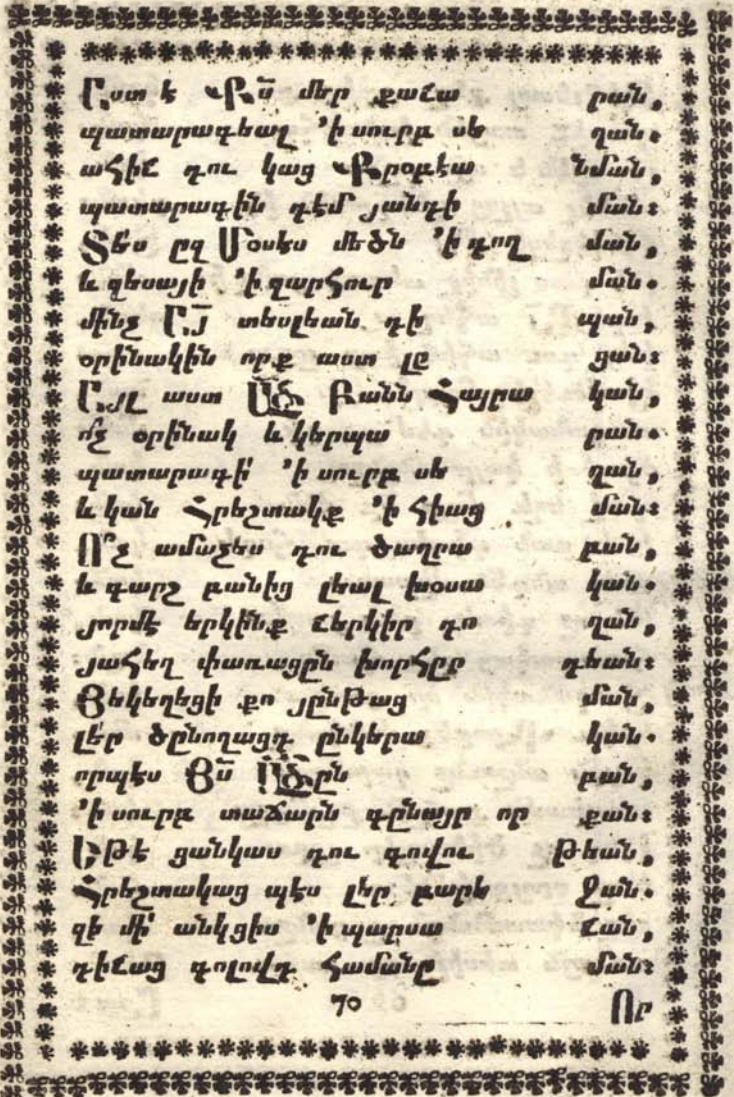 Աստ է Քս̃ մեր քահա րան,
պատարագեալ ՚ի սուրբ սե ղան։
ահիւ դու կաց Քրօբէա նման,
պատարագին դէմ յանդի ման։
Տե՛ս ըզ Մօսէս մեծն ՚ի գող ման,
և զեսայի ՚ի զարհուր ման.
մինչ ԱՅ̃ տեսլեան դի պան,
օրինակին որք աստ լը ցան։
Այլ աստ ԱԾ̃ Բանն Հայրա կան,
ո՛չ օրինակ և կերպա րան.
պատարագի՛ ՚ի սուրբ սե ղան,
և կան Հրեշտակք ՚ի հիաց ման։
Ո՞չ ամաչես դու ծաղրա բան,
և գարշ բանից լեալ խօսա կան.
յորմէ երկինք և երկիր դո ղան,
յահեղ փառացըն խորհըր դեան։
Յեկեղեցի քո յընթաց ման,
լե՛ր ծընողացդ ընկերա կան.
որպէս Յս̃ ԱԾ̃ըն բան,
՚ի սուրբ տաճարն գընայր որ քան։
Եթէ ցանկաս դու գովու թեան,
Հրեշտակաց պէս լե՛ր բարե ջան.
զի մի՛ անկցիս ՚ի պարսա ւան,
դիւաց գոլովդ համանը ման։
70 Որ